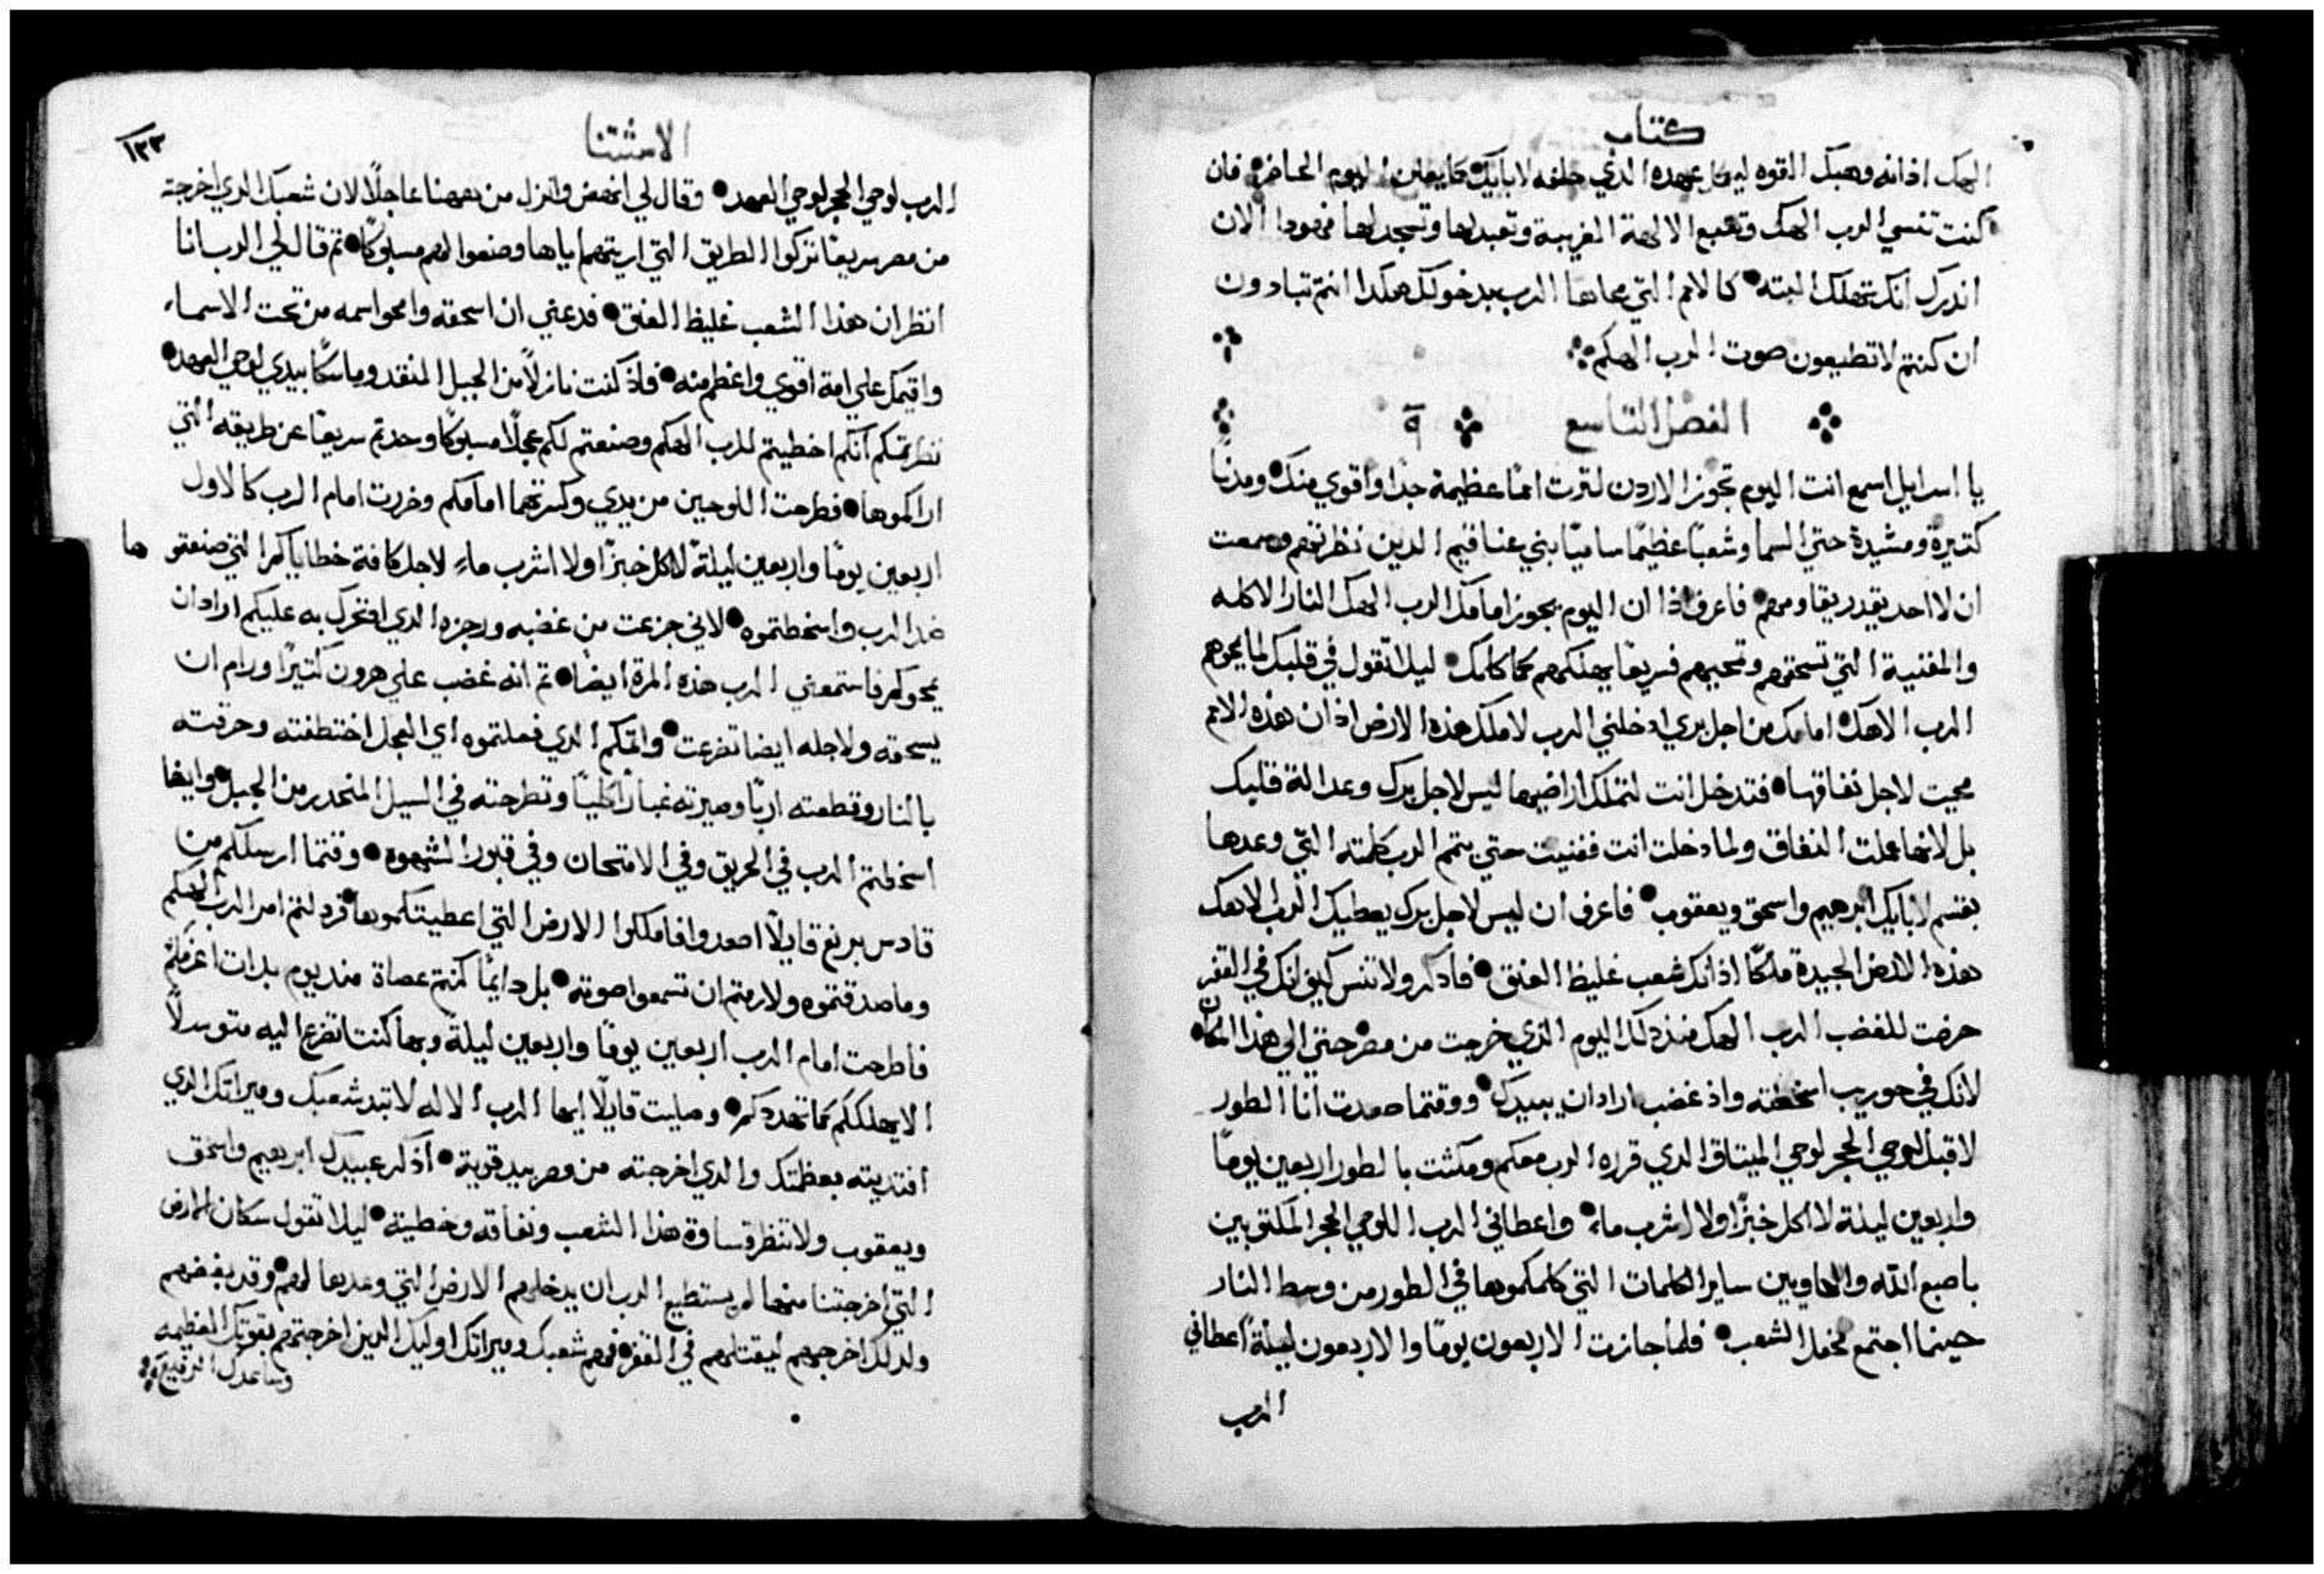 كتاب
الهك اذ انه وهبك القوه ليقيم عهده الذي حلفه لابايك كما يعلن اليوم الحاضر فان
كنت تنسي الرب الهك وتتبع الالهة الغريبة وتعبدها وتسجد لها فهودا الان
اندرك انك تهلك البته كالامم التي محاها الرب بدخولك هكدا انتم تبادون
ان كنتم لا تطيعون صوت الرب الهكم
الفصل التاسع ٩
يا اسرايل اسمع انت اليوم تجوز الاردن لترت امما عظيمة جدا واقوي منك ومدنا
كتيرة ومشيدة حتي السما وشعبا عظيما ساميا بني عناقيم الدين نظرتهم وسمعت
ان لا احد يقدر يقاومهم فاعرف اذا ان اليوم يجوز امامك الرب الهك النار الاكله
والمفنية التي تسحقهم وتمحيهم فسريعا يهلكهم كما كلمك ليلا تقول في قلبك لما يمحوهم
الرب الاهك امامك من اجل بري ادخلني الرب لاملك هذه الارض اذ ان هذه الامم
محيت لاجل نفاقها فتدخل انت لتملك اراضيها ليس لاجل برك وعدالة قلبك
بل لانها عملت النفاق ولما دخلت انت ففنيت حتي يتم الرب كلمته التي وعدها
بقسم لابايك ابرهيم واسحق ويعقوب فاعرف ان ليس لاجل برك يعطيك الرب الاهك
هذه الارض الجيدة ملكا اذ انك شعب غليظ العنق فادكر ولا تنس كيف انك في القفر
حرضت للغضب الرب الهك منذ دلك اليوم الذي خرجت من مصر حتي الي هذا المكان
لانك في حوريب اسخطته واذ غضب اراد ان يبيدك ووقتما صعدت انا الطور
لاقبل لوحي الحجر لوحي الميتاق الدي قرره الرب معكم ومكثت بالطور اربعين يوما
واربعين ليلة لا اكل خبزا ولا اشرب ماء واعطاني الرب اللوحي الحجر المكتوبين
باصبع الله والحاويين ساير الكلمات التي كلمكموها في الطور من وسط النار
حينما اجتمع محفل الشعب فلما جازت الاربعون يوما والاربعون ليلة اعطاني
الرب
الاستتنا
١٢٣
الرب لوحي الحجر لوحي العهد وقال لي انهض وانزل من ههنا عاجلا لان شعبك الدي اخرجته
من مصر سريعا تركوا الطريق التي اريتهم اياها وصنعوا لهم مسبوكا تم قال لي الرب انا
انظر ان هذا الشعب غليظ العنق فدعني ان اسحقه وامحو اسمه من تحت الاسماء
واقيمك علي امة اقوي واعظم منه فاذ كنت نازلا من الجبل المتقد وماسكا بيدي لوحي العهد
نظرتكم انكم اخطيتم للرب الهكم وصنعتم لكم عجلا مسبوكا وحدتم سريعا عن طريقه التي
اراكموها فطرحت اللوحين من يدي وكسرتهما امامكم وخررت امام الرب كالاول
اربعين يوما واربعين ليلة لا اكل خبزا ولا اشرب ماء لاجل كافة خطاياكم التي صنعتوها
ضد الرب واسخطتموه لاني جزعت من غضبه ورجزه الدي اذ تحرك به عليكم اراد ان
يمحوكم فاستمعني الرب هذه المرة ايضا تم انه غضب علي هرون كتيرا ورام ان
يسحقه ولاجله ايضا تضرعت واتمكم الدي فعلتموه اي العجل اختطفته وحرقته
بالنار وقطعته اربا وصيرته غبارا كليا وتطرحته في السيل المنحدر من الجبل وايضا
اسخطتم الرب في الحريق وفي الامتحان وفي قبور الشهوه وقتما ارسلكم من
قادس برنع قايلا اصعدوا فاملكوا الارض التي اعطيتكموها فردلتم امر الرب الهكم
وما صدقتموه ولا رمتم ان تسمعوا صوته بل دايما كنتم عصاة منذ يوم بدات اعرفكم
فاطرحت امام الرب اربعين يوما واربعين ليلة وبها كنت اتضرع اليه متوسلا
الا يهلككم كما تهددكم وصليت قايلا ايها الرب الاله لا تبد شعبك وميراتك الدي
افتديته بعظمتك والدي اخرجته من مصر بيد قوية اذكر عبيدك ابرهيم واسحق
ويعقوب ولا تنظر قساوة هذا الشعب ونفاقه وخطيته ليلا تقول سكان الارض
التي اخرجتنا منها لم يستطيع الرب ان يدخلهم الارض التي وعدها لهم وقد يغضهم
ولدلك اخرجهم ليقتلهم في القفر فهم شعبك وميراتك اوليك الدين اخرجتهم بقوتك العظيمه
وساعدك الرفيع